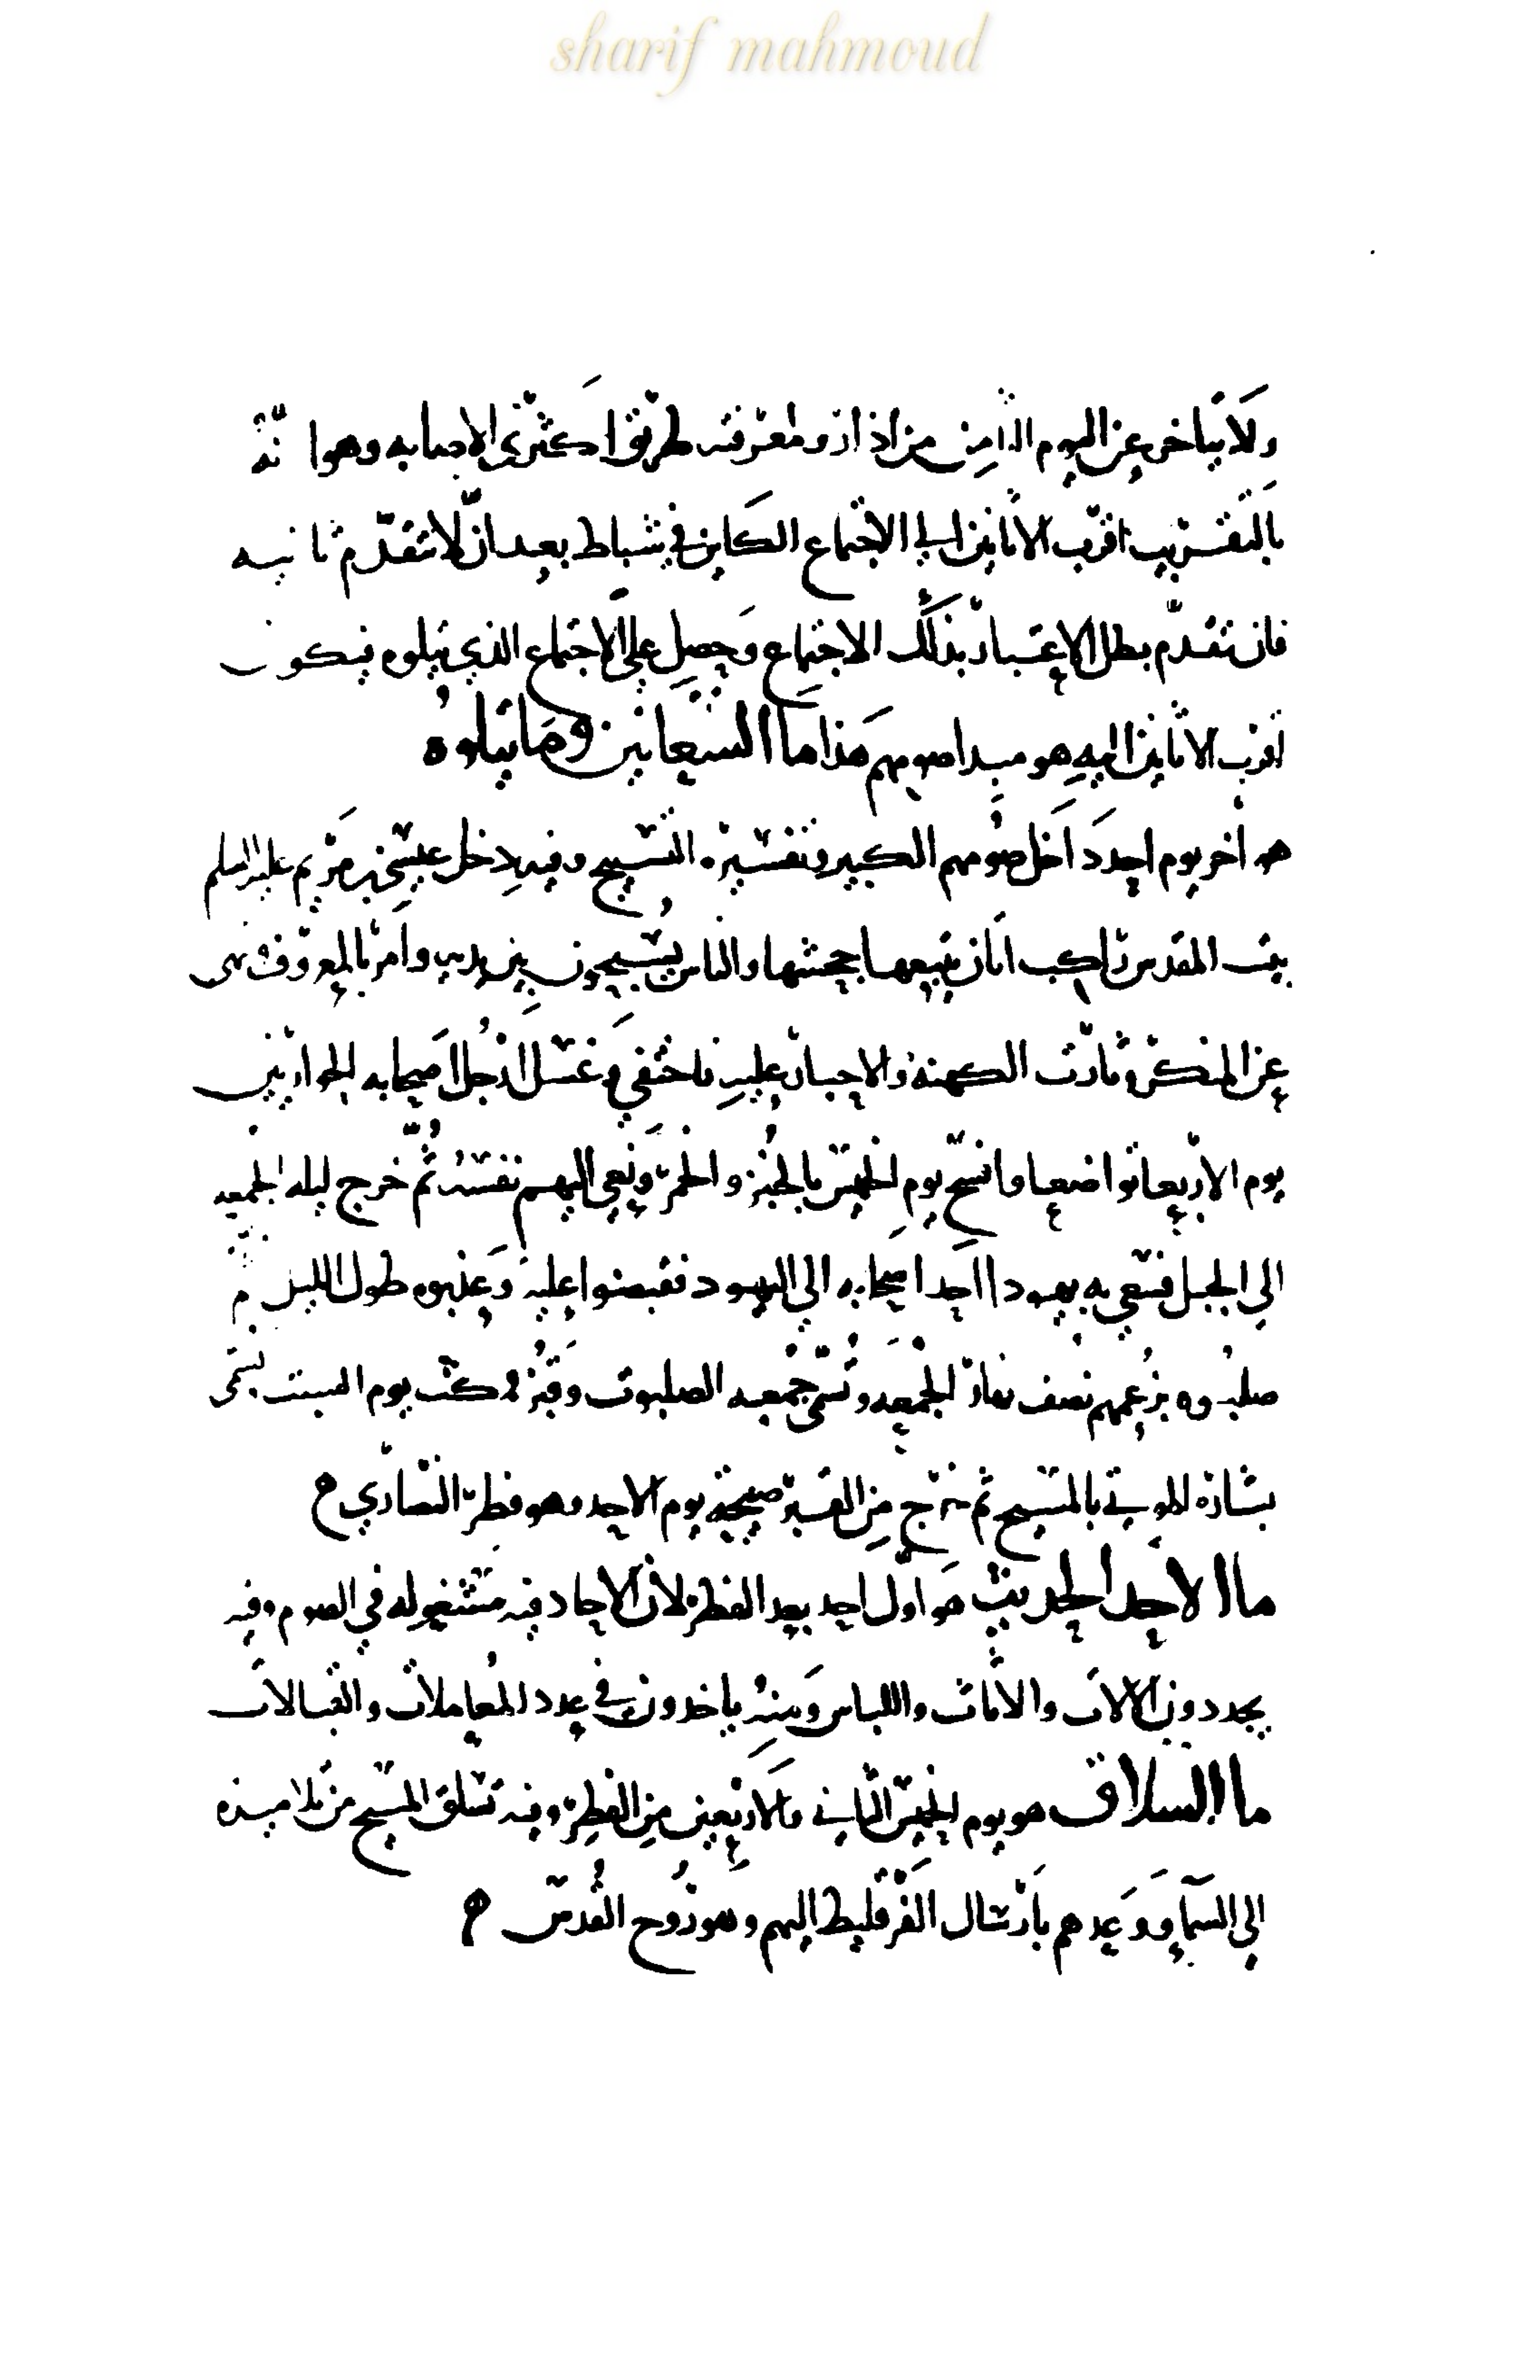 sharif mahmoud
ولا يتاخر عن اليوم الثامن من اذار ولمعرفته طريق اكثرى الاصابه وهو انه
بالتقريب اقرب الاثانين الى الاجتماع الكاين في شباط بعد ان لا تتقدم ثانيه
فان تقدم بطل الاعتبار بذلك الاجتماع وحصل على الاجتماع الذي يتلوه فيكون
اقرب الاثانين اليه هو مبدا صومهم هذا ما السعانين وما يتلوه
هو آخر يوم احد داخل صومهم الكبير وتفسيره التسبيح وفيه دخل عيسى بن مريم عليه السلم
بيت المقدس راكب اتان يتبعها جحشها والناس يسبحون بين يديه وامر بالمعروف ونهى
عن المنكر وثارت الكهنة والاحبار عليه فاختفى وغسل ارجل اصحابه الحواريين
يوم الاربعا تواضعا وافسح يوم الخميس بالخبز والخمر ونعى اليهم نفسه ثم خرج ليله الجمعه
الى الجبل فسعى به يهودا احد اصحابه الى اليهود فقبضوا عليه وعذبوه طول الليل ثم
صلبوه بزعمهم نصف نهار الجمعه وتسمى جمعه الصلبوت وقبره مكث يوم السبت تسمى
بشاره الموتى بالمسيح ثم خرج من القبر صبيحة يوم الاحد وهو فطر النصارى
ما الاحد الحديث هو اول احد بعد الفطر لان الاحاد فيه مشغوله في الصوم وفيه
يجددون الالات والاثاث واللباس ومنه ياخذون في عدد المعاملات والقبالات
ما السلاق هو يوم الخميس الثاني والاربعين من الفطر وفيه تسلق المسيح من تلاميذه
الى السماء ووعدهم بارسال الفرقليط اليهم وهو روح القدس